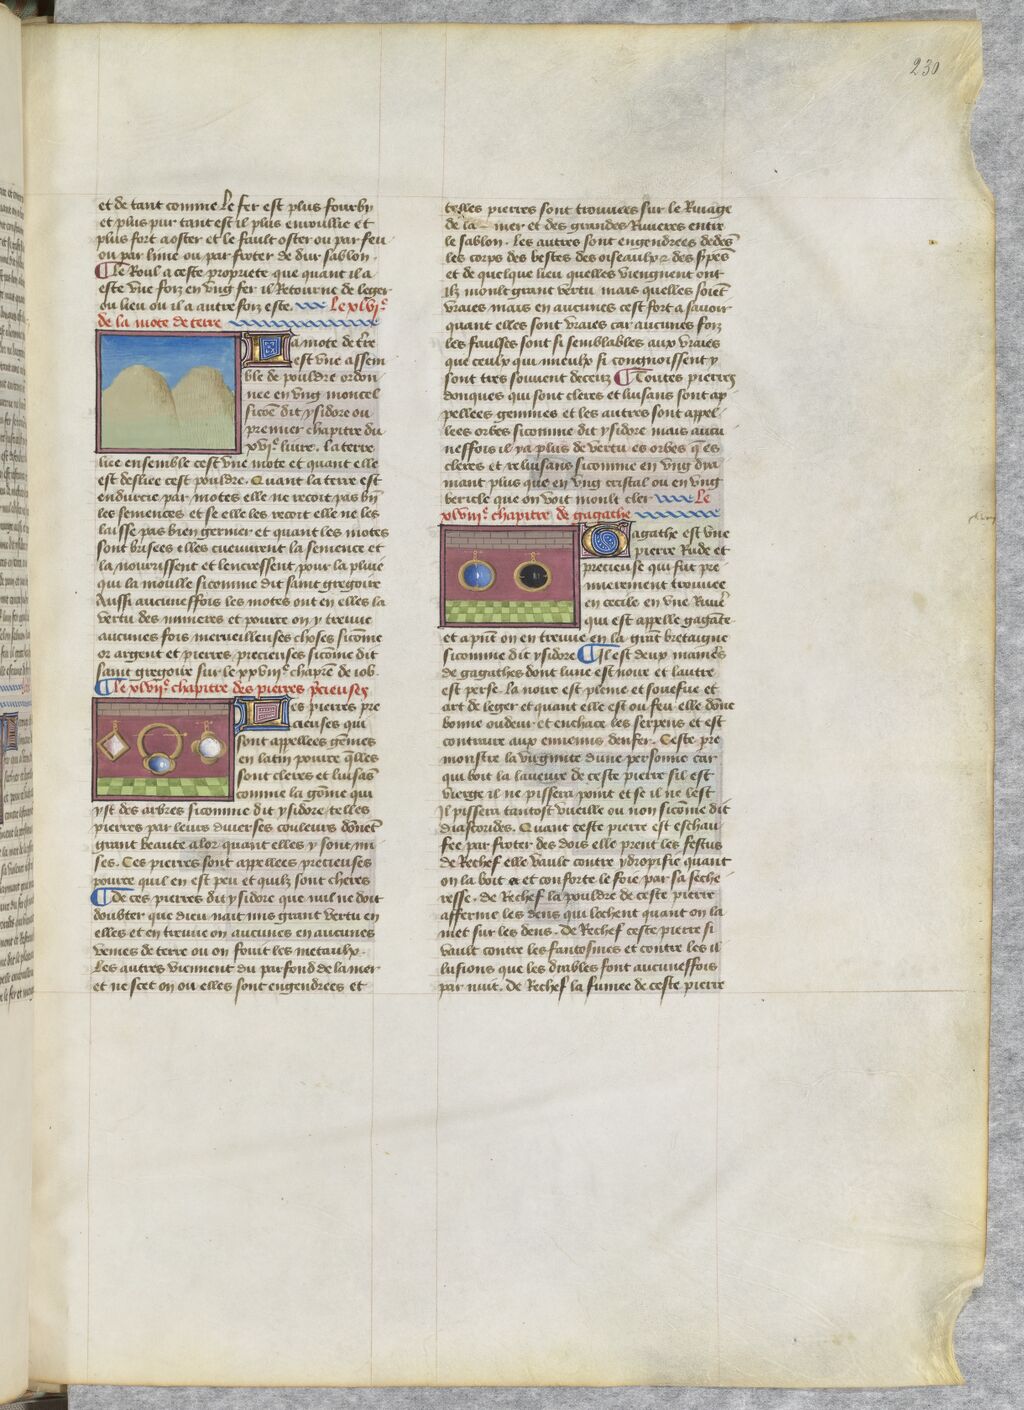 230
et de tant comme le fer est plus fourby
et plus pur tant est il plus enroullie et
plus fort a oster et le fault oster ou par feu
ou par lime ou par froter de dur sablon.
Le Roul a ceste propriete que quant il a
este une foiz en ung fer il Retourne de leger
ou lieu ou il a autre foiz este. Le xlvi.e
de la mote de terre
La mote de tr̄re
est une assem
ble de pouldre ordon
nee en ung moncel
sicōe dit ysidore ou
premier chapitre du
xvi.e livre. la terre
liee ensemble cest une mote et quant elle
est desliee cest pouldre. Quant la terre est
endurcie par motes elle ne recoit pas bn̄
les semences et se elle les recoit elle ne les
laisse pas bien germer et quant les motes
sont brisees elles cueuvrent la semence et
la nourissent et lencressent pour la pluie
qui la moulle sicomme dit saint gregoire
Aussi aucuneffois les motes ont en elles la
vertu des minieres et pource on y treuve
aucunes fois merveilleuses choses sicōme
or argent et pierres precieuses sicōme dit
saint gregoire sur le xxviii.e chapr̄e de iob.
Le xlvii.e chapitre des pierres p̄cieuses
Les pierres pre
cieuses qui
sont appellees gēmes
en latin pource q̄lles
sont cleres et luisās
comme la gōme qui
yst des arbres sicomme dit ysidore. telles
pierres par leurs diverses couleurs dōnēt
grant beaute a lor quant elles y sont mi
ses. Ces pierres sont appellees precieuses
pource quil en est peu et quilz sont chieres
De ces pierres dit ysidore que nul ne doit
doubter que dieu nait mis grant vertu en
elles et en treuve on aucunes en aucunes
veines de terre ou on fouit les metaulx.
Les autres viennent du parfond de la mer
et ne scet on ou elles sont engendrees et
telles pierres sont trouvees sur le Rivage
de la mer et des grandes Rivieres entre
le sablon. les autres sont engendrees dedēs
les corps des bestes des oiseaulx et des s̄pēs
et de quelque lieu quelles viengnent ont
ilz moult grant vertu mais quelles soiēt
vraies mais en aucunes cest fort a savoir
quant elles sont vraies car aucunes foiz
les faulses sont si semblables aux vraies
que ceulx qui mieulx si congnoissent y
sont tres souvent deceuz Toutes pierres
donques qui sont cleres et luisans sont ap
pellees gemmes et les autres sont appel
lees orbes sicomme dit ysidore mais aucu
neffois il y a plus de vertu es orbes q̄ es
cleres et reluisans sicomme en ung dia
mant plus que en ung cristal ou en ung
bericle que on voit moult cler Le
xlviii.e chapitre de gagathe
Gagathe est une
pierre Rude et
precieuse qui fut pre
mierement trouvee
en cecile en une Rivie᷑
qui est appelle gagate
et a p̄nt on en treuve en la grāt bretaigne
sicomme dit ysidore Il est deux manie᷑s
de gagathes dont lune est noire et lautre
est perse. la noire est pleine et souefue et
art de leger et quant elle est ou feu elle dōne
bonne oudeur et enchace les serpens et est
contraire aux ennemis denfer. Ceste pre
monstre la virginite dune personne car
qui boit la laveure de ceste pierre sil est
vierge il ne pissera point et se il ne lest
Il pissera tantost vueille ou non sicōme dit
diascorides. Quant ceste pierre est eschau
fee par froter des dois elle prent les festus
de Rechef elle vault contre ydropisie quant
on la boit et conforte le foie par sa seche
resse. de Rechef la pouldre de ceste pierre
afferme les dens qui lochent quant on la
met sur les dens. De Rechef ceste pierre si
vault contre les fantosmes et contre les il
lusions que les diables font aucuneffois
par nuit. De Rechef la fumee de ceste pierre